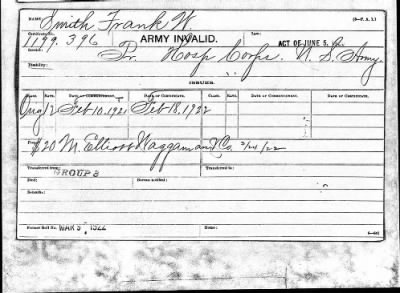 NAME: Smith Frank W. (3-P.A.I.)
Certificate No. Law:
1199.396 ARMY INVALID. ACT OF JUNE 5,
Service: Pr. Hosp Corps. U.S. Army.
Disability:
ISSUES.
CLASS. RATE. DATE OF COMMENCEMENT. DATE OF CERTIFICATE. CLASS. RATE. DATE OF COMMENCEMENT. DATE OF CERTIFICATE.
12 Feb 10, 1921 Feb 18, 1922
$20 M. Elliott Waggaman & Co. 2/24/22
Transferred from Transferred to
GROUP 3
Died: Bureau notified:
Remarks:
Former Roll No. MAR 3, 1922 Home: